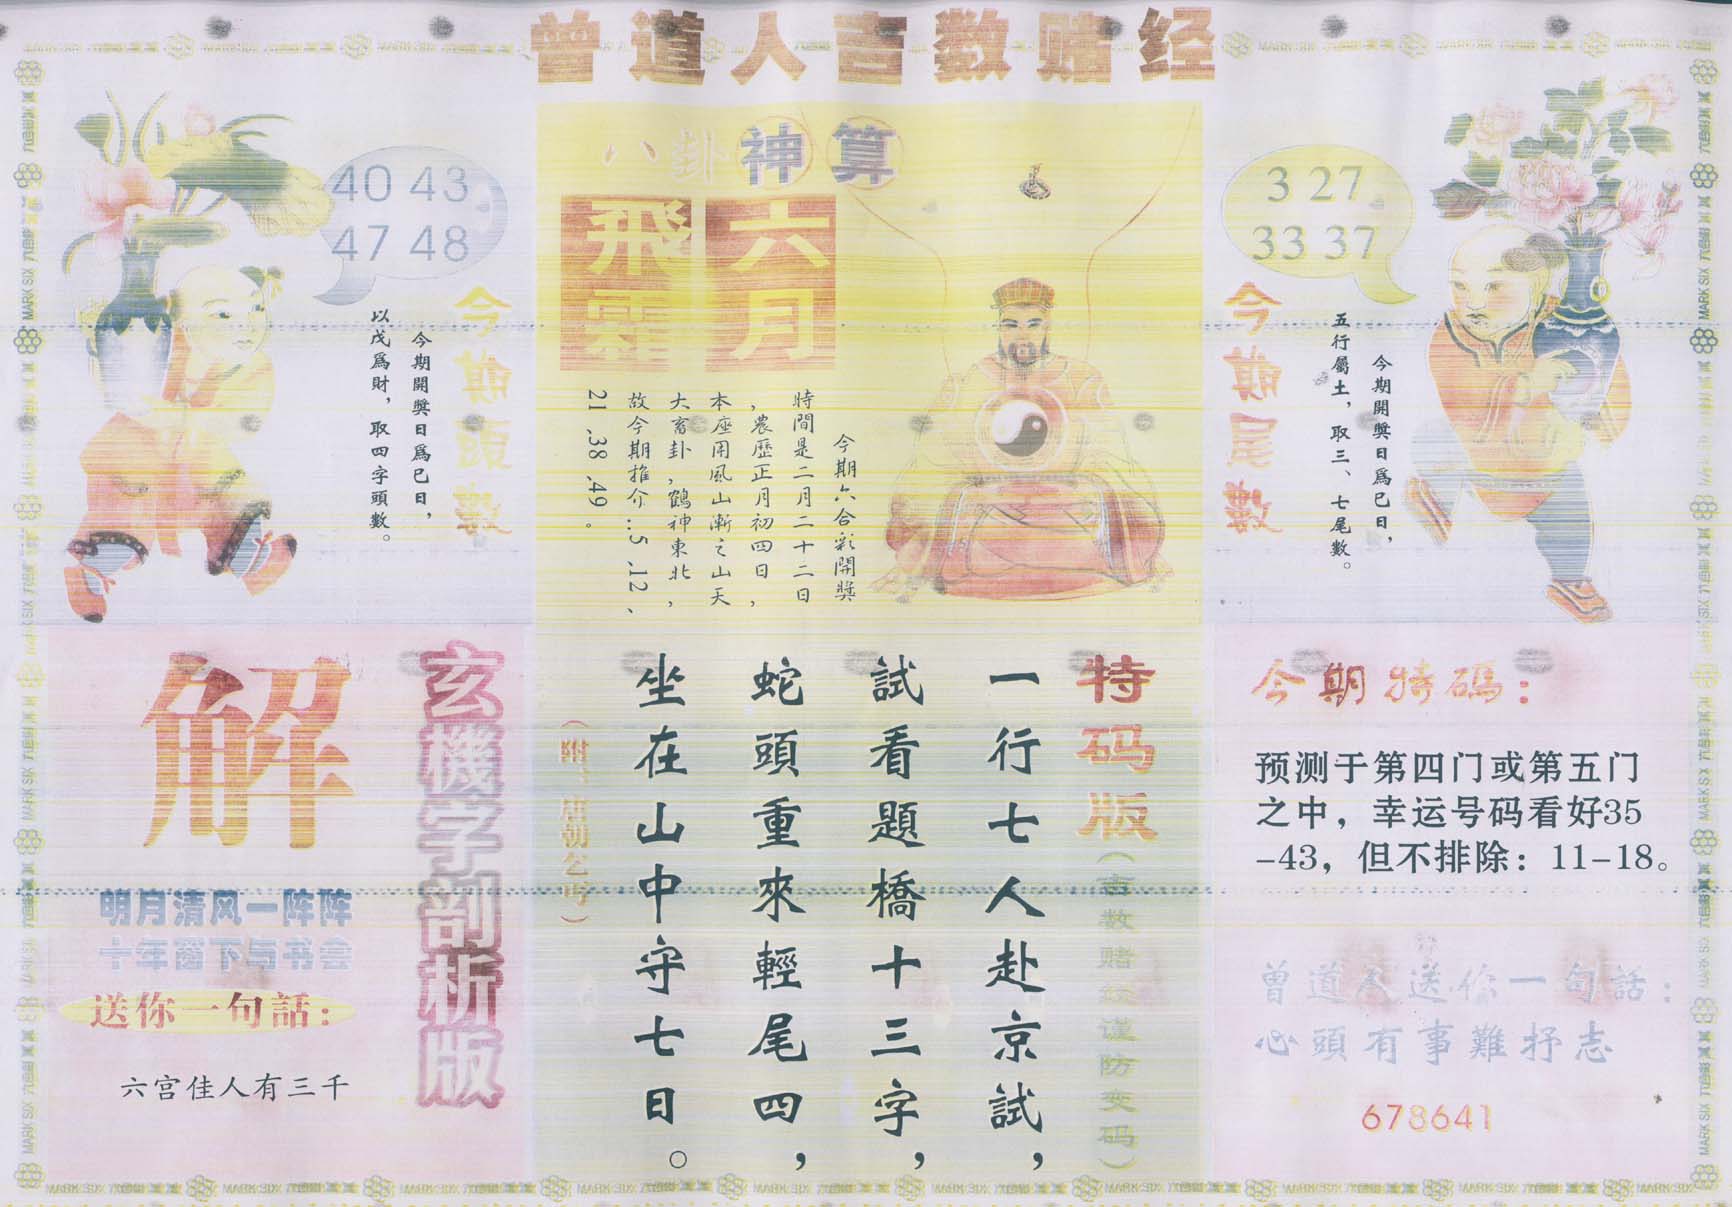 曾道人吉数赌经
40 43
47 48
今期頭數
今期開獎日爲巳日，
以戊爲財，取四字頭數。
八卦神算
六月
飛霜
今期六合彩開獎
時間是二月二十二日
，農歷正月初四日，
本座用風山漸之山天
大畜卦，鶴神東北，
故今期推介：.5 .12、
21 .38 .49。
3 27
33 37
今期尾數
今期開獎日爲巳日，
五行屬土，取三、七尾數。
玄機字剖析版
解
明月清风一阵阵
十年窗下与书会
送你一句話：
六宫佳人有三千
特码版（吉数赌经谨防变码）
一行七人赴京試，
試看題橋十三字，
蛇頭重來輕尾四，
坐在山中守七日。
（附：唐朝乞丐）
今期特碼：
预测于第四门或第五门
之中，幸运号码看好35
-43，但不排除：11-18。
曾道人送你一句話：
心頭有事難抒志
678641